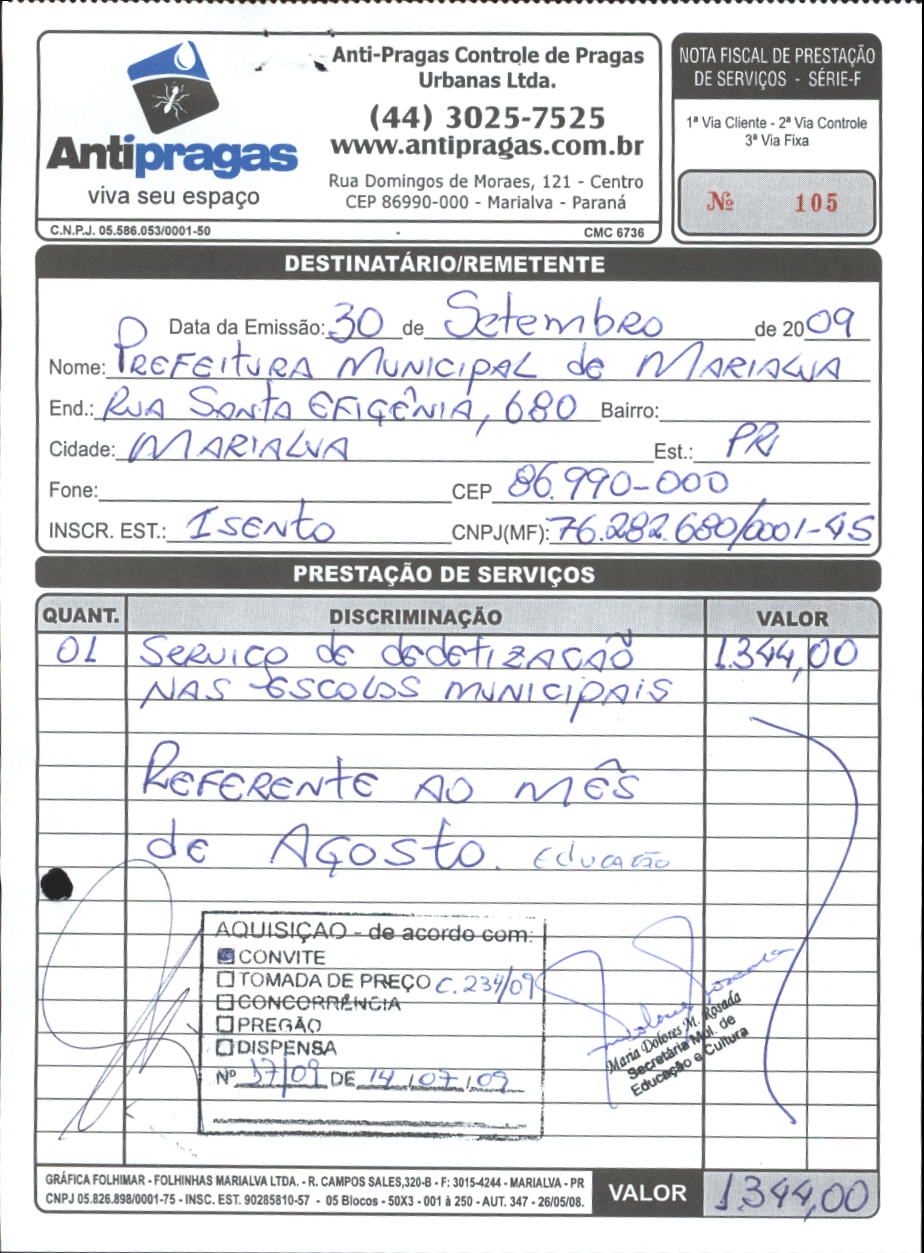 Antipragas
viva seu espaço
Anti-Pragas Controle de Pragas
Urbanas Ltda.
(44) 3025-7525
www.antipragas.com.br
Rua Domingos de Moraes, 121 - Centro
CEP 86990-000 - Marialva - Paraná
C.N.P.J. 05.586.053/0001-50 - CMC 6736
NOTA FISCAL DE PRESTAÇÃO
DE SERVIÇOS - SÉRIE-F
1ª Via Cliente - 2ª Via Controle
3ª Via Fixa
Nº 105
DESTINATÁRIO/REMETENTE
Data da Emissão: 30 de Setembro de 2009
Nome: PREFEITURA MUNICIPAL de MARIALVA
End.: RUA SANTA EFIGÊNIA, 680 Bairro:
Cidade: MARIALVA Est.: PR
Fone: CEP 86.990-000
INSCR. EST.: ISENTO CNPJ(MF): 76.282.680/0001-45
PRESTAÇÃO DE SERVIÇOS
QUANT. DISCRIMINAÇÃO VALOR
01 SERVIÇO DE DEDETIZAÇÃO 1.344,00
NAS ESCOLAS MUNICIPAIS
REFERENTE AO MÊS
de AGOSTO. EDUCAÇÃO
AQUISIÇÃO - de acordo com:
CONVITE
TOMADA DE PREÇO C. 234/09
CONCORRÊNCIA
PREGÃO
DISPENSA
Nº 37/09 DE 14/07/09
Maria Dolores M. Rosada
Secretária Mul. de
Educação e Cultura
GRÁFICA FOLHIMAR - FOLHINHAS MARIALVA LTDA. - R. CAMPOS SALES,320-B - F: 3015-4244 - MARIALVA - PR
CNPJ 05.826.898/0001-75 - INSC. EST. 90285810-57 - 05 Blocos - 50X3 - 001 à 250 - AUT. 347 - 26/05/08.
VALOR 1.344,00